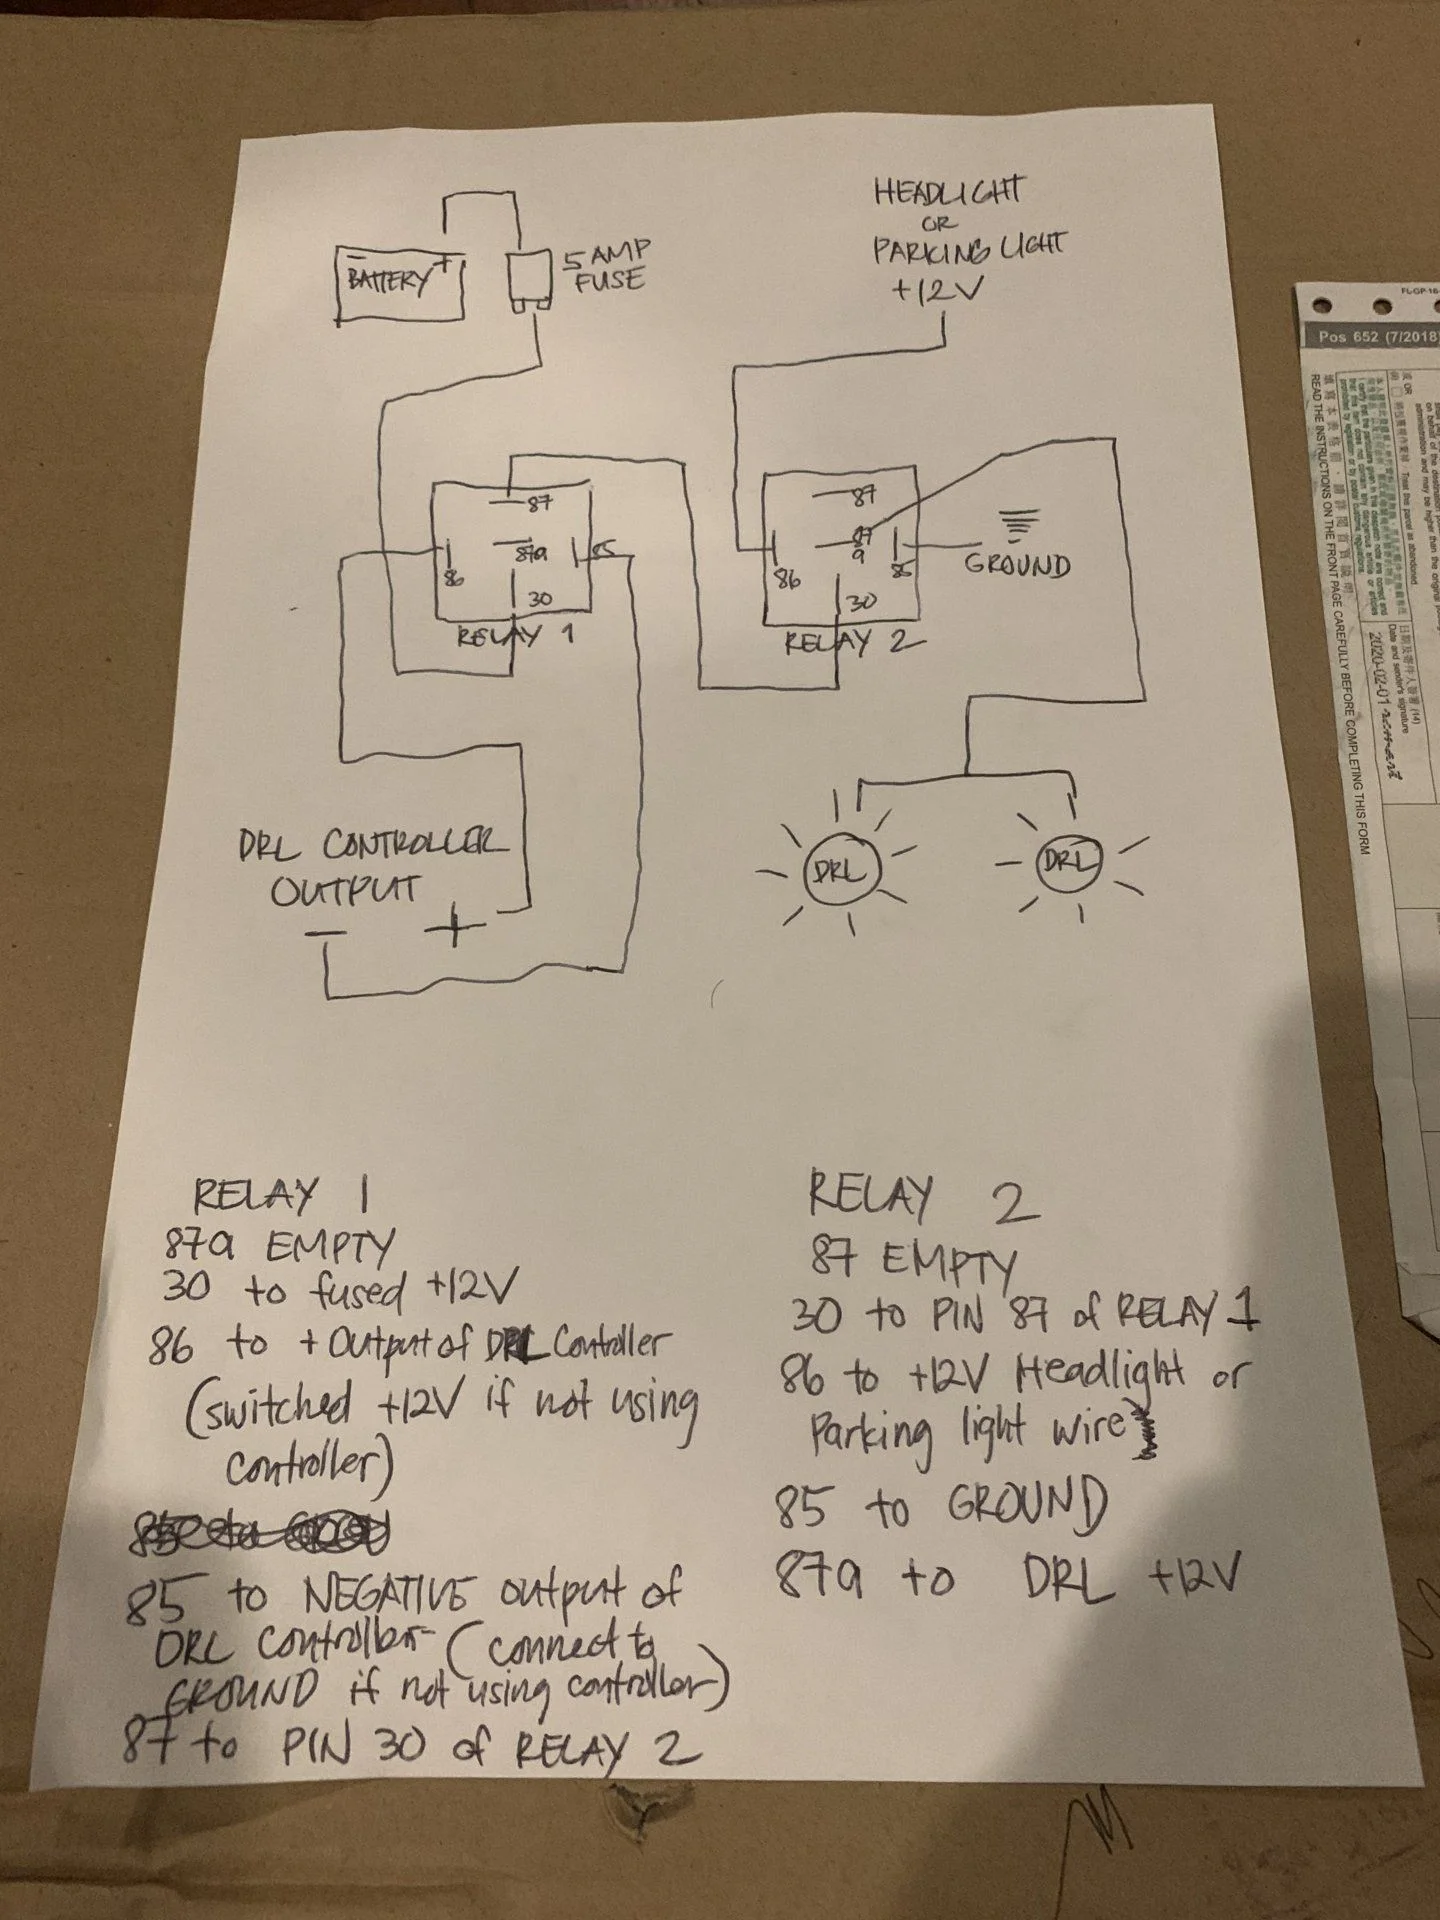 BATTERY
- +
5 AMP
FUSE
HEADLIGHT
OR
PARKING LIGHT
+12V
87
87a
86
85
30
RELAY 1
87
87
a
86
30
RELAY 2
GROUND
DRL CONTROLLER
OUTPUT
- +
DRL
DRL
RELAY 1
87a EMPTY
30 to fused +12V
86 to + Output of DRL Controller
(switched +12V if not using
controller)
85 to NEGATIVE output of
DRL controller (connect to
GROUND if not using controller)
87 to PIN 30 of RELAY 2
RELAY 2
87 EMPTY
30 to PIN 87 of RELAY 1
86 to +12V Headlight or
Parking light wire
85 to GROUND
87a to DRL +12V
FL-GP-16
Pos 652 (7/2018)
READ THE INSTRUCTIONS ON THE FRONT PAGE CAREFULLY BEFORE COMPLETING THIS FORM
Date and sender's signature
2020-02-01